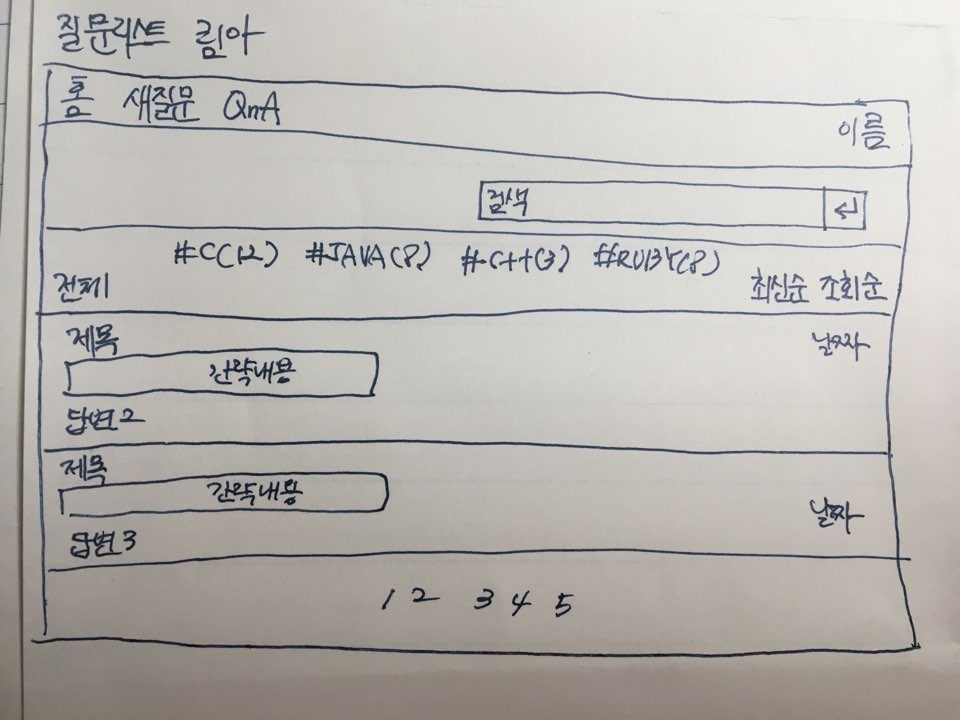 질문리스트 림아
홈 새질문 QnA 이름
검색
#C(12) #JAVA(8) #C++(3) #RUBY(8)
전체 최신순 조회순
제목 날짜
간략내용
답변2
제목
간략내용
날짜
답변3
1 2 3 4 5